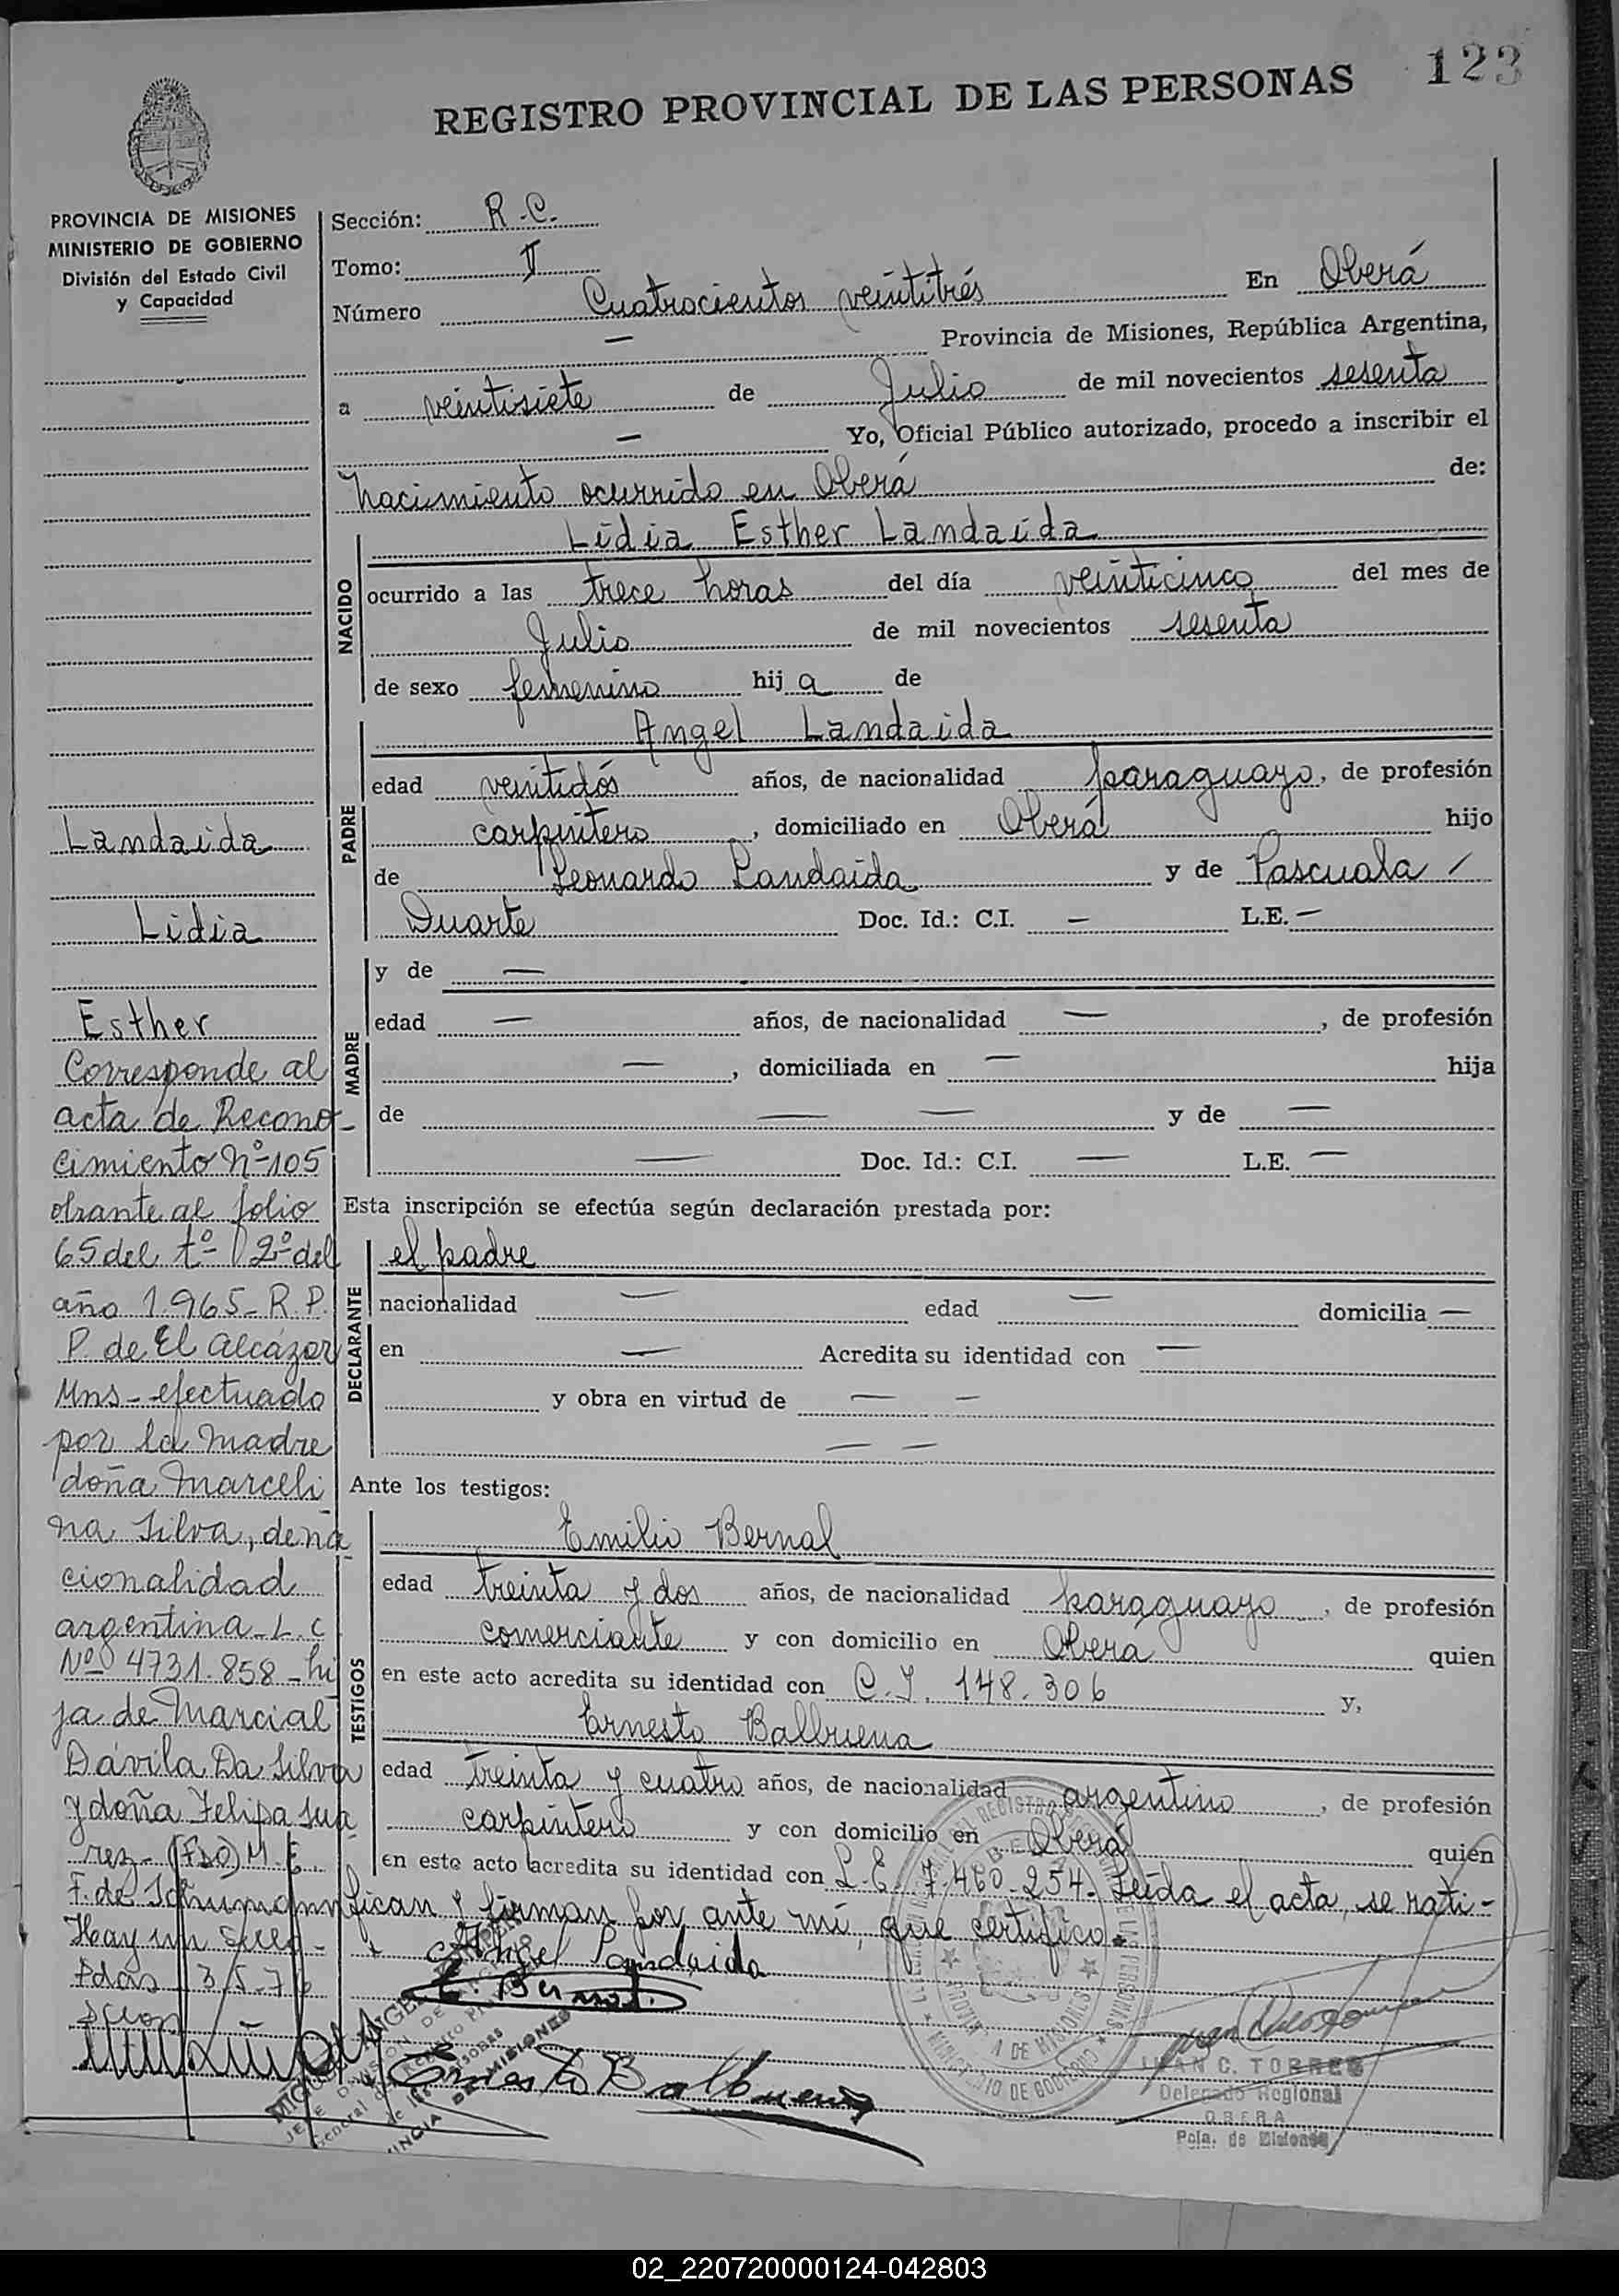 123
REGISTRO PROVINCIAL DE LAS PERSONAS
PROVINCIA DE MISIONES
MINISTERIO DE GOBIERNO
División del Estado Civil
y Capacidad
Sección: R.C.
Tomo: II
Número Cuatrocientos veintitrés En Oberá
— Provincia de Misiones, República Argentina,
a veintisiete de Julio de mil novecientos sesenta
— Yo, Oficial Público autorizado, procedo a inscribir el
nacimiento ocurrido en Oberá de:
NACIDO
Lidia Esther Landaida
ocurrido a las trece horas del día veinticinco del mes de
Julio de mil novecientos sesenta
de sexo femenino hija de
PADRE
Angel Landaida
edad veintidós años, de nacionalidad paraguayo, de profesión
carpintero, domiciliado en Oberá hijo
de Leonardo Landaida y de Pascuala /
Duarte Doc. Id.: C.I. — L.E. —
MADRE
y de —
edad — años, de nacionalidad —, de profesión
—, domiciliada en — hija
de — — y de —
— Doc. Id.: C.I. — L.E. —
Esta inscripción se efectúa según declaración prestada por:
DECLARANTE
el padre
nacionalidad — edad — domicilia —
en — Acredita su identidad con —
y obra en virtud de — —
— —
Ante los testigos:
TESTIGOS
Emilio Bernal
edad treinta y dos años, de nacionalidad paraguayo, de profesión
comerciante y con domicilio en Oberá quien
en este acto acredita su identidad con C.I. 148.306 y,
Ernesto Balbuena
edad treinta y cuatro años, de nacionalidad argentino, de profesión
carpintero y con domicilio en Oberá quien
en este acto acredita su identidad con L.E. 7.460.254. Leída el acta, se rati-
fican y firman por ante mí, que certifico.
Angel Landaida
E. Bernal
Ernesto Balbuena
JUAN C. TORRES
Delegado Regional
OBERA
Pcia. de Misiones
Landaida
Lidia
Esther
Corresponde al
acta de Recono-
cimiento Nº 105
obrante al folio
65 del tº 2º del
año 1.965- R.P.
P. de El Alcázar
Mns- efectuado
por la madre
doña Marceli
na Silva, de na
cionalidad
argentina- L.C
Nº 4731.858- hi
ja de Marcial
Dávila Da Silva
y doña Felipa Sua
rez- (FDO) M. E.
F. de
Hay un sello-
Pdas 3/5-7
02_220720000124-042803